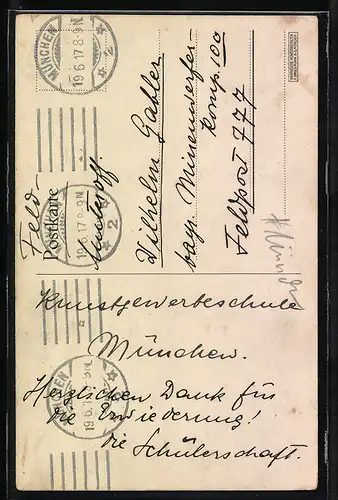 MÜNCHEN
19.6.17.8-9N
2
Feld-
Postkarte
Wilhelm Gabler
bayr. Minenwerfer-
Komp. 100
Feldpost 777
Kunstgewerbeschule
München.
Herzlichen Dank für
die Erwiederung!
die Schülerschaft.